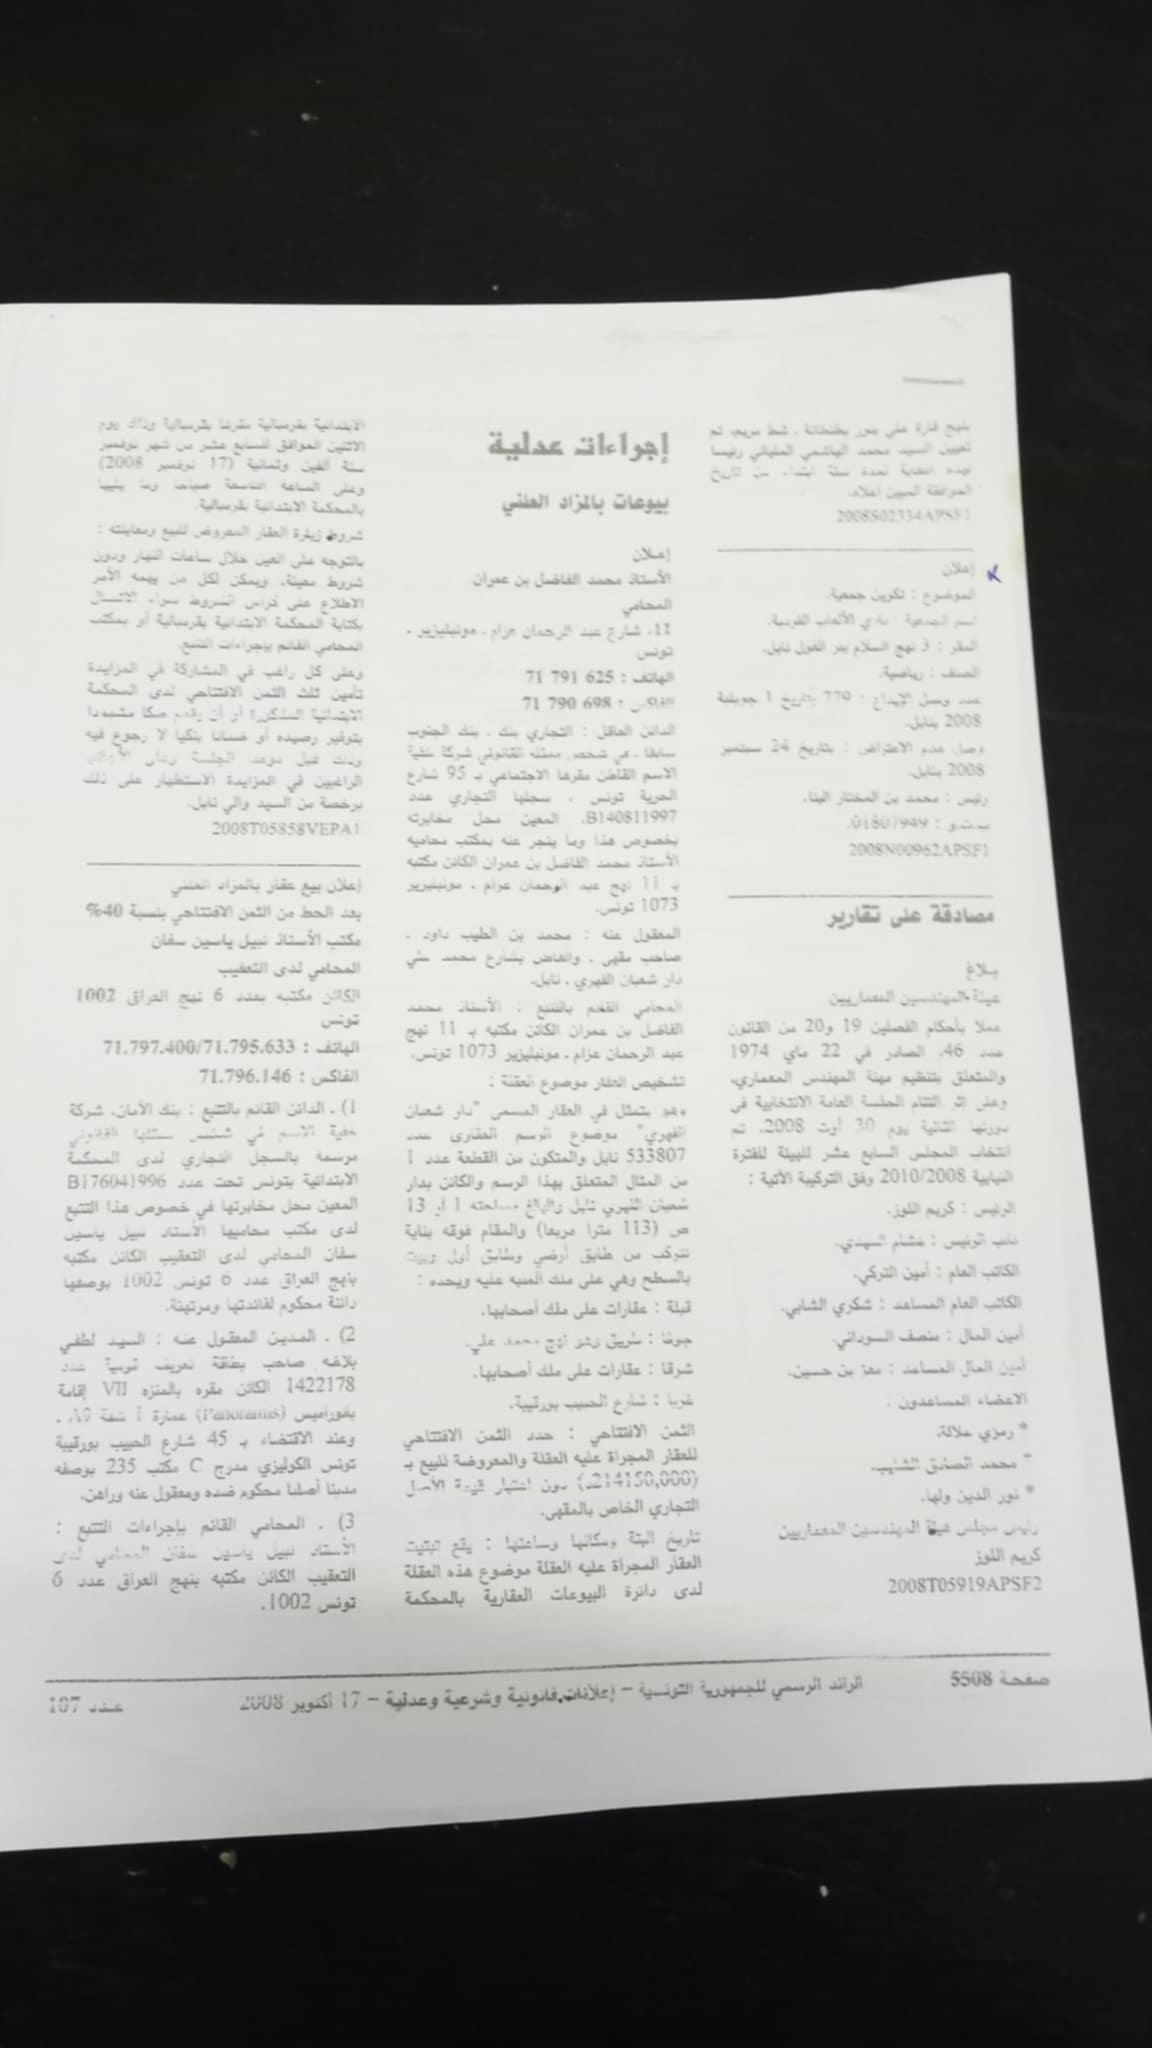 بنهج قارة علي بنور بطنطانة . شط مريم، تم
تعيين السيد محمد الهاشمي المثياني رئيسا
لهذه النقابة لمدة سنة ابتداء من تاريخ
الموافقة المبين أعلاه.
2008S02334APSF1
إعلان
الموضوع : تكوين جمعية.
اسم الجمعية : نادي الألعاب الفردية.
المقر : 3 نهج السلام بئر الغول نابل.
الصنف : رياضية.
عدد وصل الإيداع : 779 بتاريخ 1 جويلية
2008 بنابل.
وصل عدم الاعتراض : بتاريخ 24 سبتمبر
2008 بنابل.
رئيس : محمد بن المختار البنا.
ب.ت.و : 01807949.
2008N00962APSF1
مصادقة على تقارير
بلاغ
هيئة المهندسين المعماريين
عملا بأحكام الفصلين 19 و20 من القانون
عدد 46، الصادر في 22 ماي 1974
والمتعلق بتنظيم مهنة المهندس المعماري،
وعلى إثر التئام الجلسة العامة الانتخابية في
دورتها الثانية يوم 30 أوت 2008، تم
انتخاب المجلس السابع عشر للهيئة للفترة
النيابية 2010/2008 وفق التركيبة الآتية :
الرئيس : كريم اللوز.
نائب الرئيس : هشام المهدي.
الكاتب العام : أمين التركي.
الكاتب العام المساعد : شكري الشابي.
أمين المال : منصف السوداني.
أمين المال المساعد : معز بن حسين.
الأعضاء المساعدون :
* رمزي علالة.
* محمد الصادق الشايب.
* نور الدين ولها.
رئيس مجلس هيئة المهندسين المعماريين
كريم اللوز
2008T05919APSF2
إجراءات عدلية
بيوعات بالمزاد العلني
إعلان
الأستاذ محمد الفاضل بن عمران
المحامي
11، شارع عبد الرحمان عزام . مونبليزير .
تونس
الهاتف : 71 791 625
الفاكس : 71 790 698
الدائن العاقل : التجاري بنك . بنك الجنوب
سابقا . في شخص ممثله القانوني شركة خفية
الاسم القاطن مقرها الاجتماعي بـ 95 شارع
الحرية تونس . سجلها التجاري عدد
B140811997. المعين محل مخابرته
بخصوص هذا وما ينجر عنه بمكتب محاميه
الأستاذ محمد الفاضل بن عمران الكائن مكتبه
بـ 11 نهج عبد الرحمان عزام . مونبليزير
1073 تونس.
المعقول عنه : محمد بن الطيب داود .
صاحب مقهى . والقاطن بشارع محمد علي
دار شعبان الفهري . نابل.
المحامي القائم بالتتبع : الأستاذ محمد
الفاضل بن عمران الكائن مكتبه بـ 11 نهج
عبد الرحمان عزام . مونبليزير 1073 تونس.
تشخيص العقار موضوع العقلة :
وهو يتمثل في العقار المسمى "دار شعبان
الفهري" موضوع الرسم العقاري عدد
533807 نابل والمتكون من القطعة عدد 1
من المثال المتعلق بهذا الرسم والكائن بدار
شعبان الفهري نابل والبالغ مساحته 1 أر 13
ص (113 مترا مربعا) والمقام فوقه بناية
تتركب من طابق أرضي وطابق أول وبيوت
بالسطح وهي على ملك المنبه عليه ويحده :
قبلة : عقارات على ملك أصحابها.
جوفا : طريق وهو نهج محمد علي.
شرقا : عقارات على ملك أصحابها.
غربا : شارع الحبيب بورقيبة.
الثمن الافتتاحي : حدد الثمن الافتتاحي
للعقار المجراة عليه العقلة والمعروضة للبيع بـ
(214150,000د) دون اعتبار قيمة الأصل
التجاري الخاص بالمقهى.
تاريخ البتة ومكانها وساعتها : يقع تبتيت
العقار المجراة عليه العقلة موضوع هذه العقلة
لدى دائرة البيوعات العقارية بالمحكمة
الابتدائية بقرمبالية مقرها بقرمبالية وذلك يوم
الاثنين الموافق للسابع عشر من شهر نوفمبر
سنة ألفين وثمانية (17 نوفمبر 2008)
وعلى الساعة التاسعة صباحا وما يليها
بالمحكمة الابتدائية بقرمبالية.
شروط زيارة العقار المعروض للبيع ومعاينته :
بالتوجه على العين خلال ساعات النهار ودون
شروط معينة، ويمكن لكل من يهمه الأمر
الاطلاع على كراس الشروط سواء الاتصال
بكتابة المحكمة الابتدائية بقرمبالية أو بمكتب
المحامي القائم بإجراءات التتبع.
وعلى كل راغب في المشاركة في المزايدة
تأمين ثلث الثمن الافتتاحي لدى المحكمة
الابتدائية المذكورة أو أن يقدم صكا مشهودا
بتوفير رصيده أو ضمانا بنكيا لا رجوع فيه
وذلك قبل موعد الجلسة وعلى الأجانب
الراغبين في المزايدة الاستظهار على ذلك
برخصة من السيد والي نابل.
2008T05858VEPA1
إعلان بيع عقار بالمزاد العلني
بعد الحط من الثمن الافتتاحي بنسبة 40%
مكتب الأستاذ نبيل ياسين سفان
المحامي لدى التعقيب
الكائن مكتبه بعدد 6 نهج العراق 1002
تونس
الهاتف : 71.797.400/71.795.633
الفاكس : 71.796.146
1) . الدائن القائم بالتتبع : بنك الأمان، شركة
خفية الاسم في شخص ممثلها القانوني
مرسمة بالسجل التجاري لدى المحكمة
الابتدائية بتونس تحت عدد B176041996
المعين محل مخابرتها في خصوص هذا التتبع
لدى مكتب محاميها الأستاذ نبيل ياسين
سفان المحامي لدى التعقيب الكائن مكتبه
بنهج العراق عدد 6 تونس 1002 بوصفها
دائنة محكوم لفائدتها ومرتهنة.
2) . المدين المعقول عنه : السيد لطفي
بلاغه صاحب بطاقة تعريف قومية عدد
1422178 الكائن مقره بالمنزه VII إقامة
بانوراميس (Panoramis) عمارة أ شقة A9 .
وعند الاقتضاء بـ 45 شارع الحبيب بورقيبة
تونس الكوليزي مدرج C مكتب 235 بوصفه
مدينا أصليا محكوم ضده ومعقول عنه وراهن.
3) . المحامي القائم بإجراءات التتبع :
الأستاذ نبيل ياسين سفان المحامي لدى
التعقيب الكائن مكتبه بنهج العراق عدد 6
تونس 1002.
صفحة 5508
الرائد الرسمي للجمهورية التونسية – إعلانات قانونية وشرعية وعدلية – 17 أكتوبر 2008
عدد 107